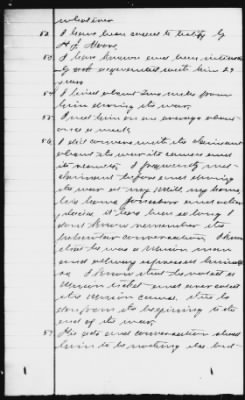 whatever
52. I have been asked to testify by
H. J. Moore.
53. I have known and been intimate
ly well acquainted with him 29
years
54. I lived about two miles from
him during the war.
55. I met him on an average about
once a week
56. I did converse with the claimant
about the war its causes and
its results. I frequently met
claimant before and during
the war at my Mill my home,
his home
It has been so long I
dont know remember the
particular conversation. I know
that he was a Union man
and always expressed himself
so. I know that he voted a
Union ticket and advocated
the Union Cause. this he
done from the beginning to the
end of the war.
57. His acts and conversation showed
him to be nothing else but